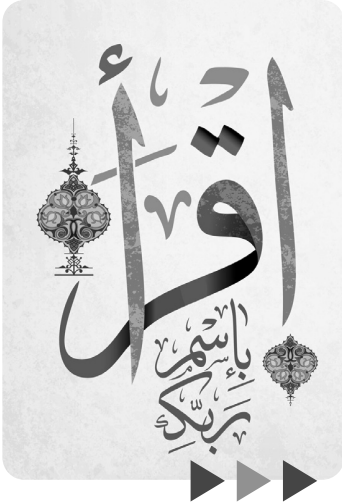 اقرأ
بِإسْمِ
رَبِّكَ